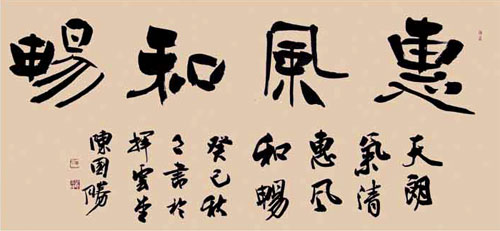 惠風和暢
天朗
氣清
惠风
和暢
癸巳秋
書於
揮雲堂
陳國勝